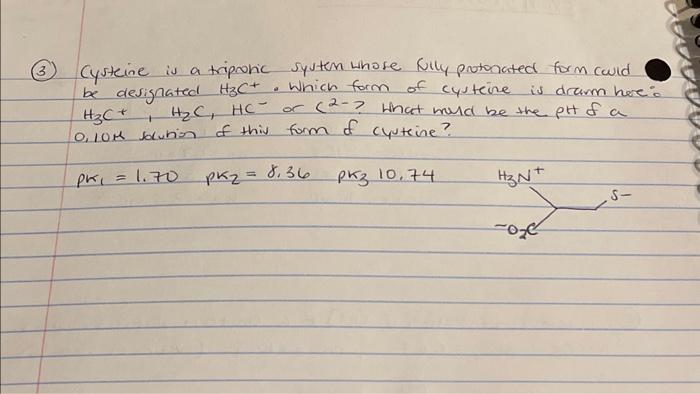 ③ Cysteine is a triprotic system whose fully protonated form could
be designated H3C+. Which form of cysteine is drawn here:
H3C+, H2C, HC- or C2-? What would be the pH of a
0.10M solution of this form of cysteine?
pK1 = 1.70 pK2 = 8.36 pK3 10.74
H3N+
S-
-O2C